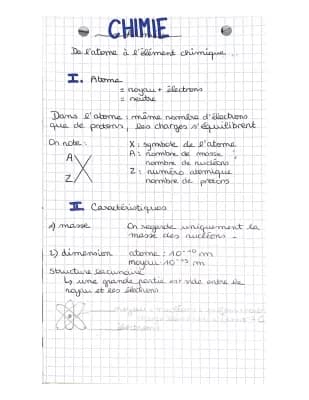 CHIMIE
De l'atome à l'élément chimique.
I. Atome
= noyau + électrons
= neutre
Dans l'atome : même nombre d'électrons
que de protons, les charges s'équilibrent
On note :
X : symbole de l'atome
A : nombre de masse
nombre de nucléons
Z : numéro atomique
nombre de protons
A
X
Z
II. Caractéristiques
1) masse
On regarde uniquement la
masse des nucléons.
2) dimension
atome : 10⁻¹⁰ m
noyau : 10⁻¹⁵ m
Structure lacunaire
↳ une grande partie est vide entre le
noyau et les électrons.
noyau
électrons